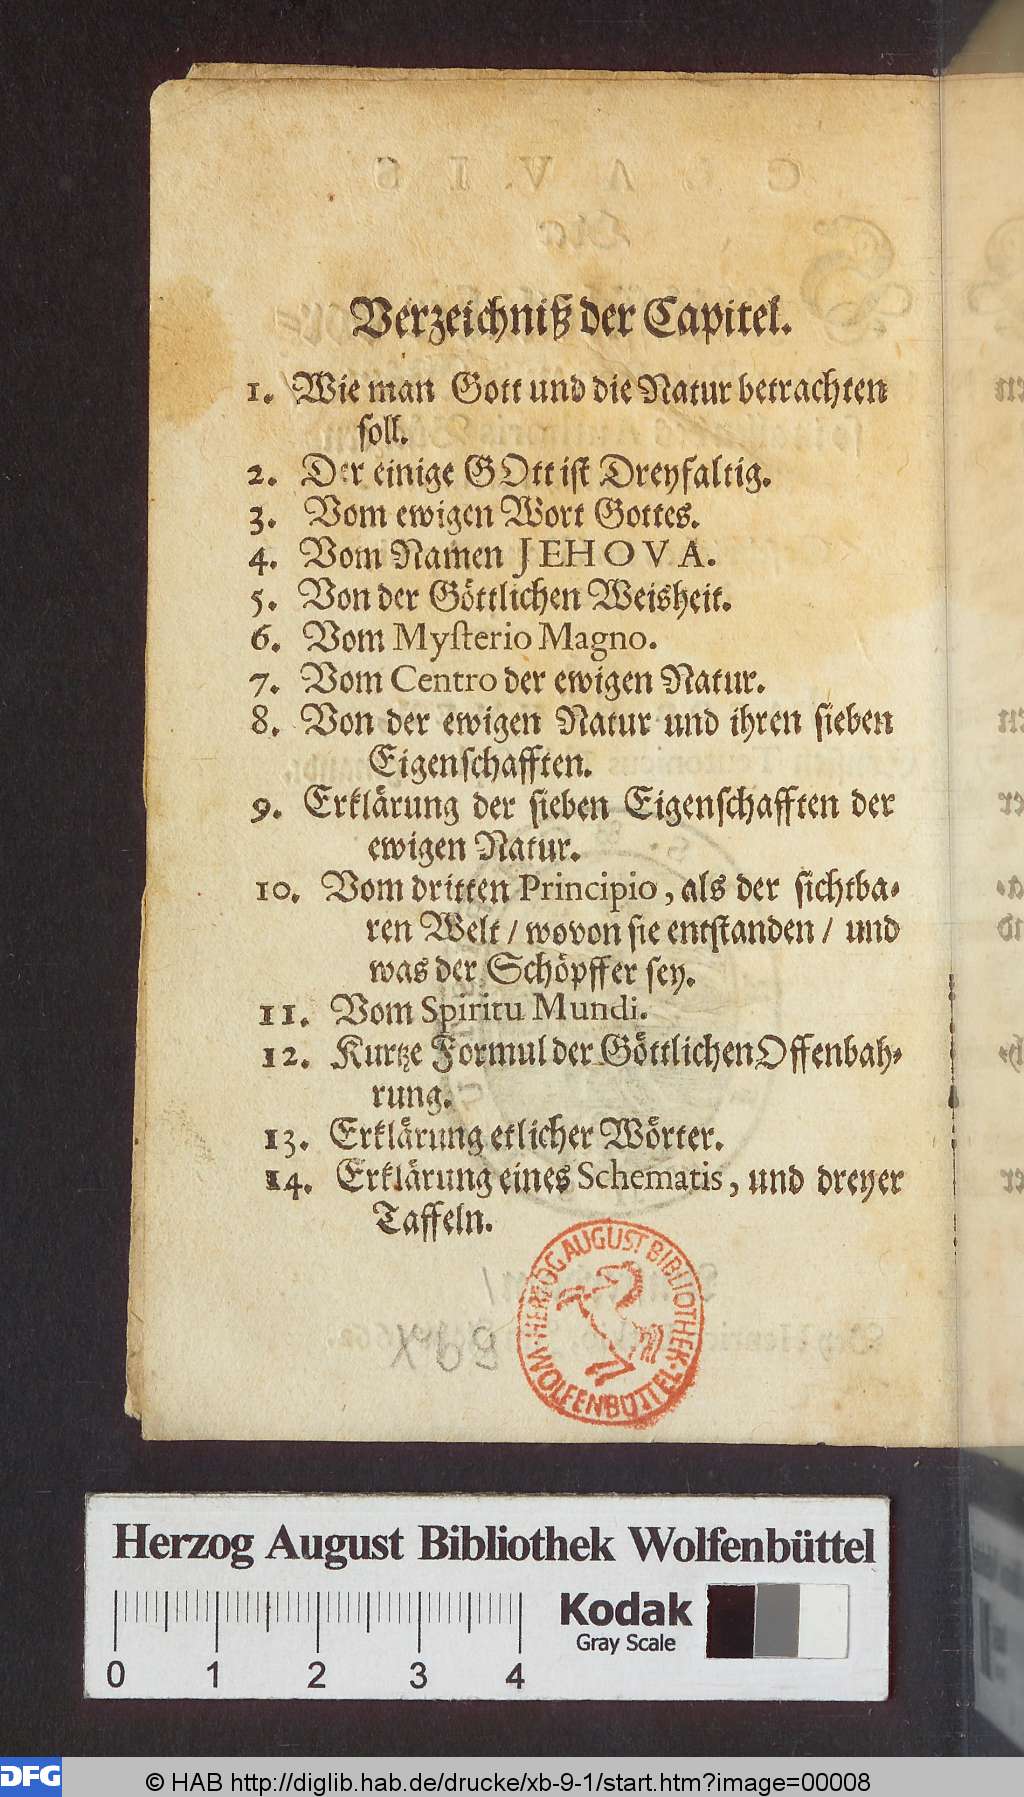 Verzeichniß der Capitel.
1. Wie man Gott und die Natur betrachten
soll.
2. Der einige GOtt ist Dreyfaltig.
3. Vom ewigen Wort Gottes.
4. Vom Namen JEHOVA.
5. Von der Göttlichen Weisheit.
6. Vom Mysterio Magno.
7. Vom Centro der ewigen Natur.
8. Von der ewigen Natur und ihren sieben
Eigenschafften.
9. Erklärung der sieben Eigenschafften der
ewigen Natur.
10. Vom dritten Principio, als der sichtba-
ren Welt / wovon sie entstanden / und
was der Schöpffer sey.
11. Vom Spiritu Mundi.
12. Kurtze Formul der Göttlichen Offenbah-
rung.
13. Erklärung etlicher Wörter.
14. Erklärung eines Schematis, und dreyer
Taffeln.
HERZOG AUGUST BIBLIOTHEK
WOLFENBÜTTEL
Herzog August Bibliothek Wolfenbüttel
Kodak
Gray Scale
0 1 2 3 4
DFG
© HAB http://diglib.hab.de/drucke/xb-9-1/start.htm?image=00008